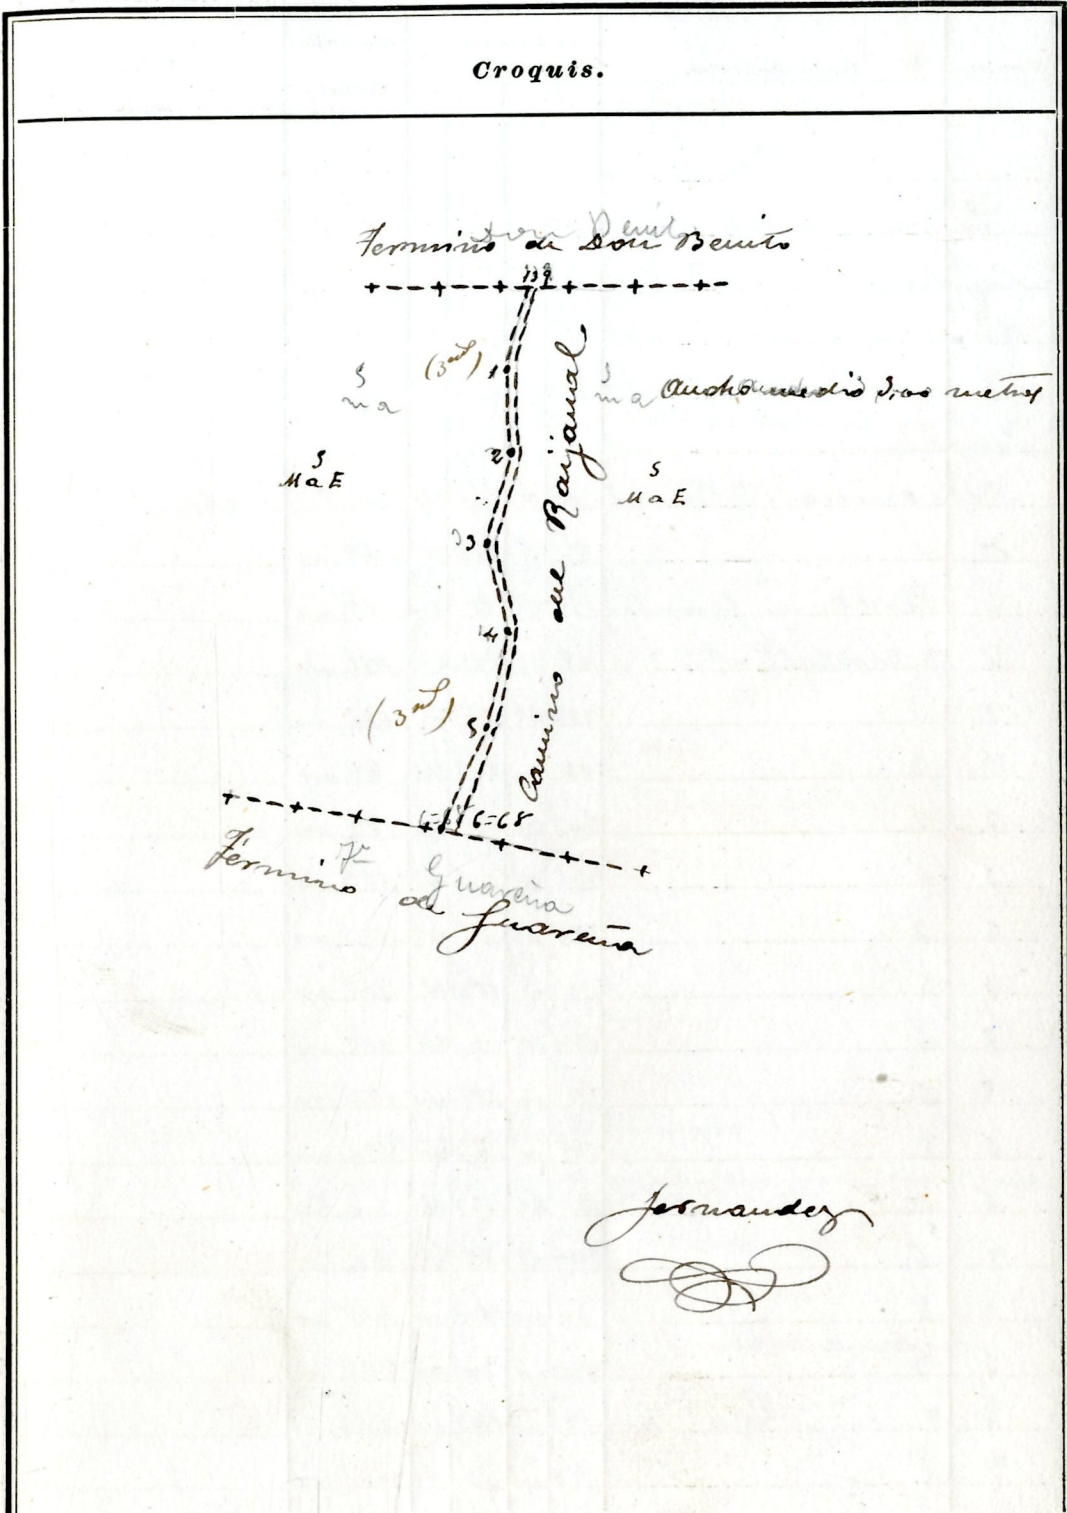 Croquis.
Don Benito
Termino de Don Benito
139
(3ml) 1
S
ma
S
ma
Ancho medio 3,00 metros
2
S
M a E
S
M a E
3
4
Camino del
(3ml) 5
6=68
Termino de Guareña
Guareña
Fernandez